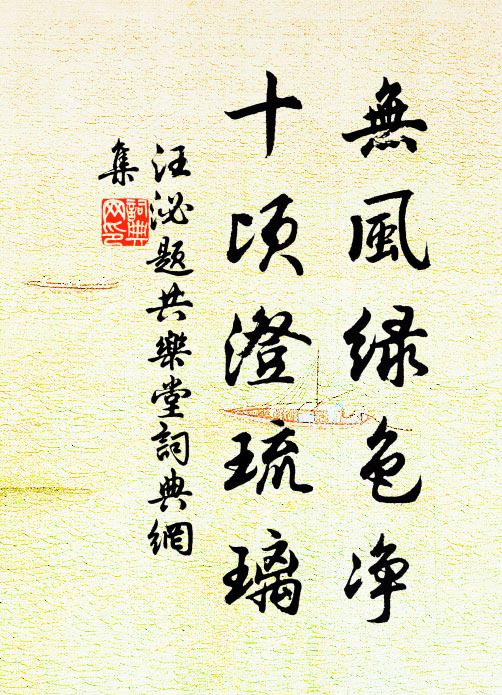 無風緑色净
十頃澄琉璃
汪泌題共樂堂詞典網
集
詞典
网印